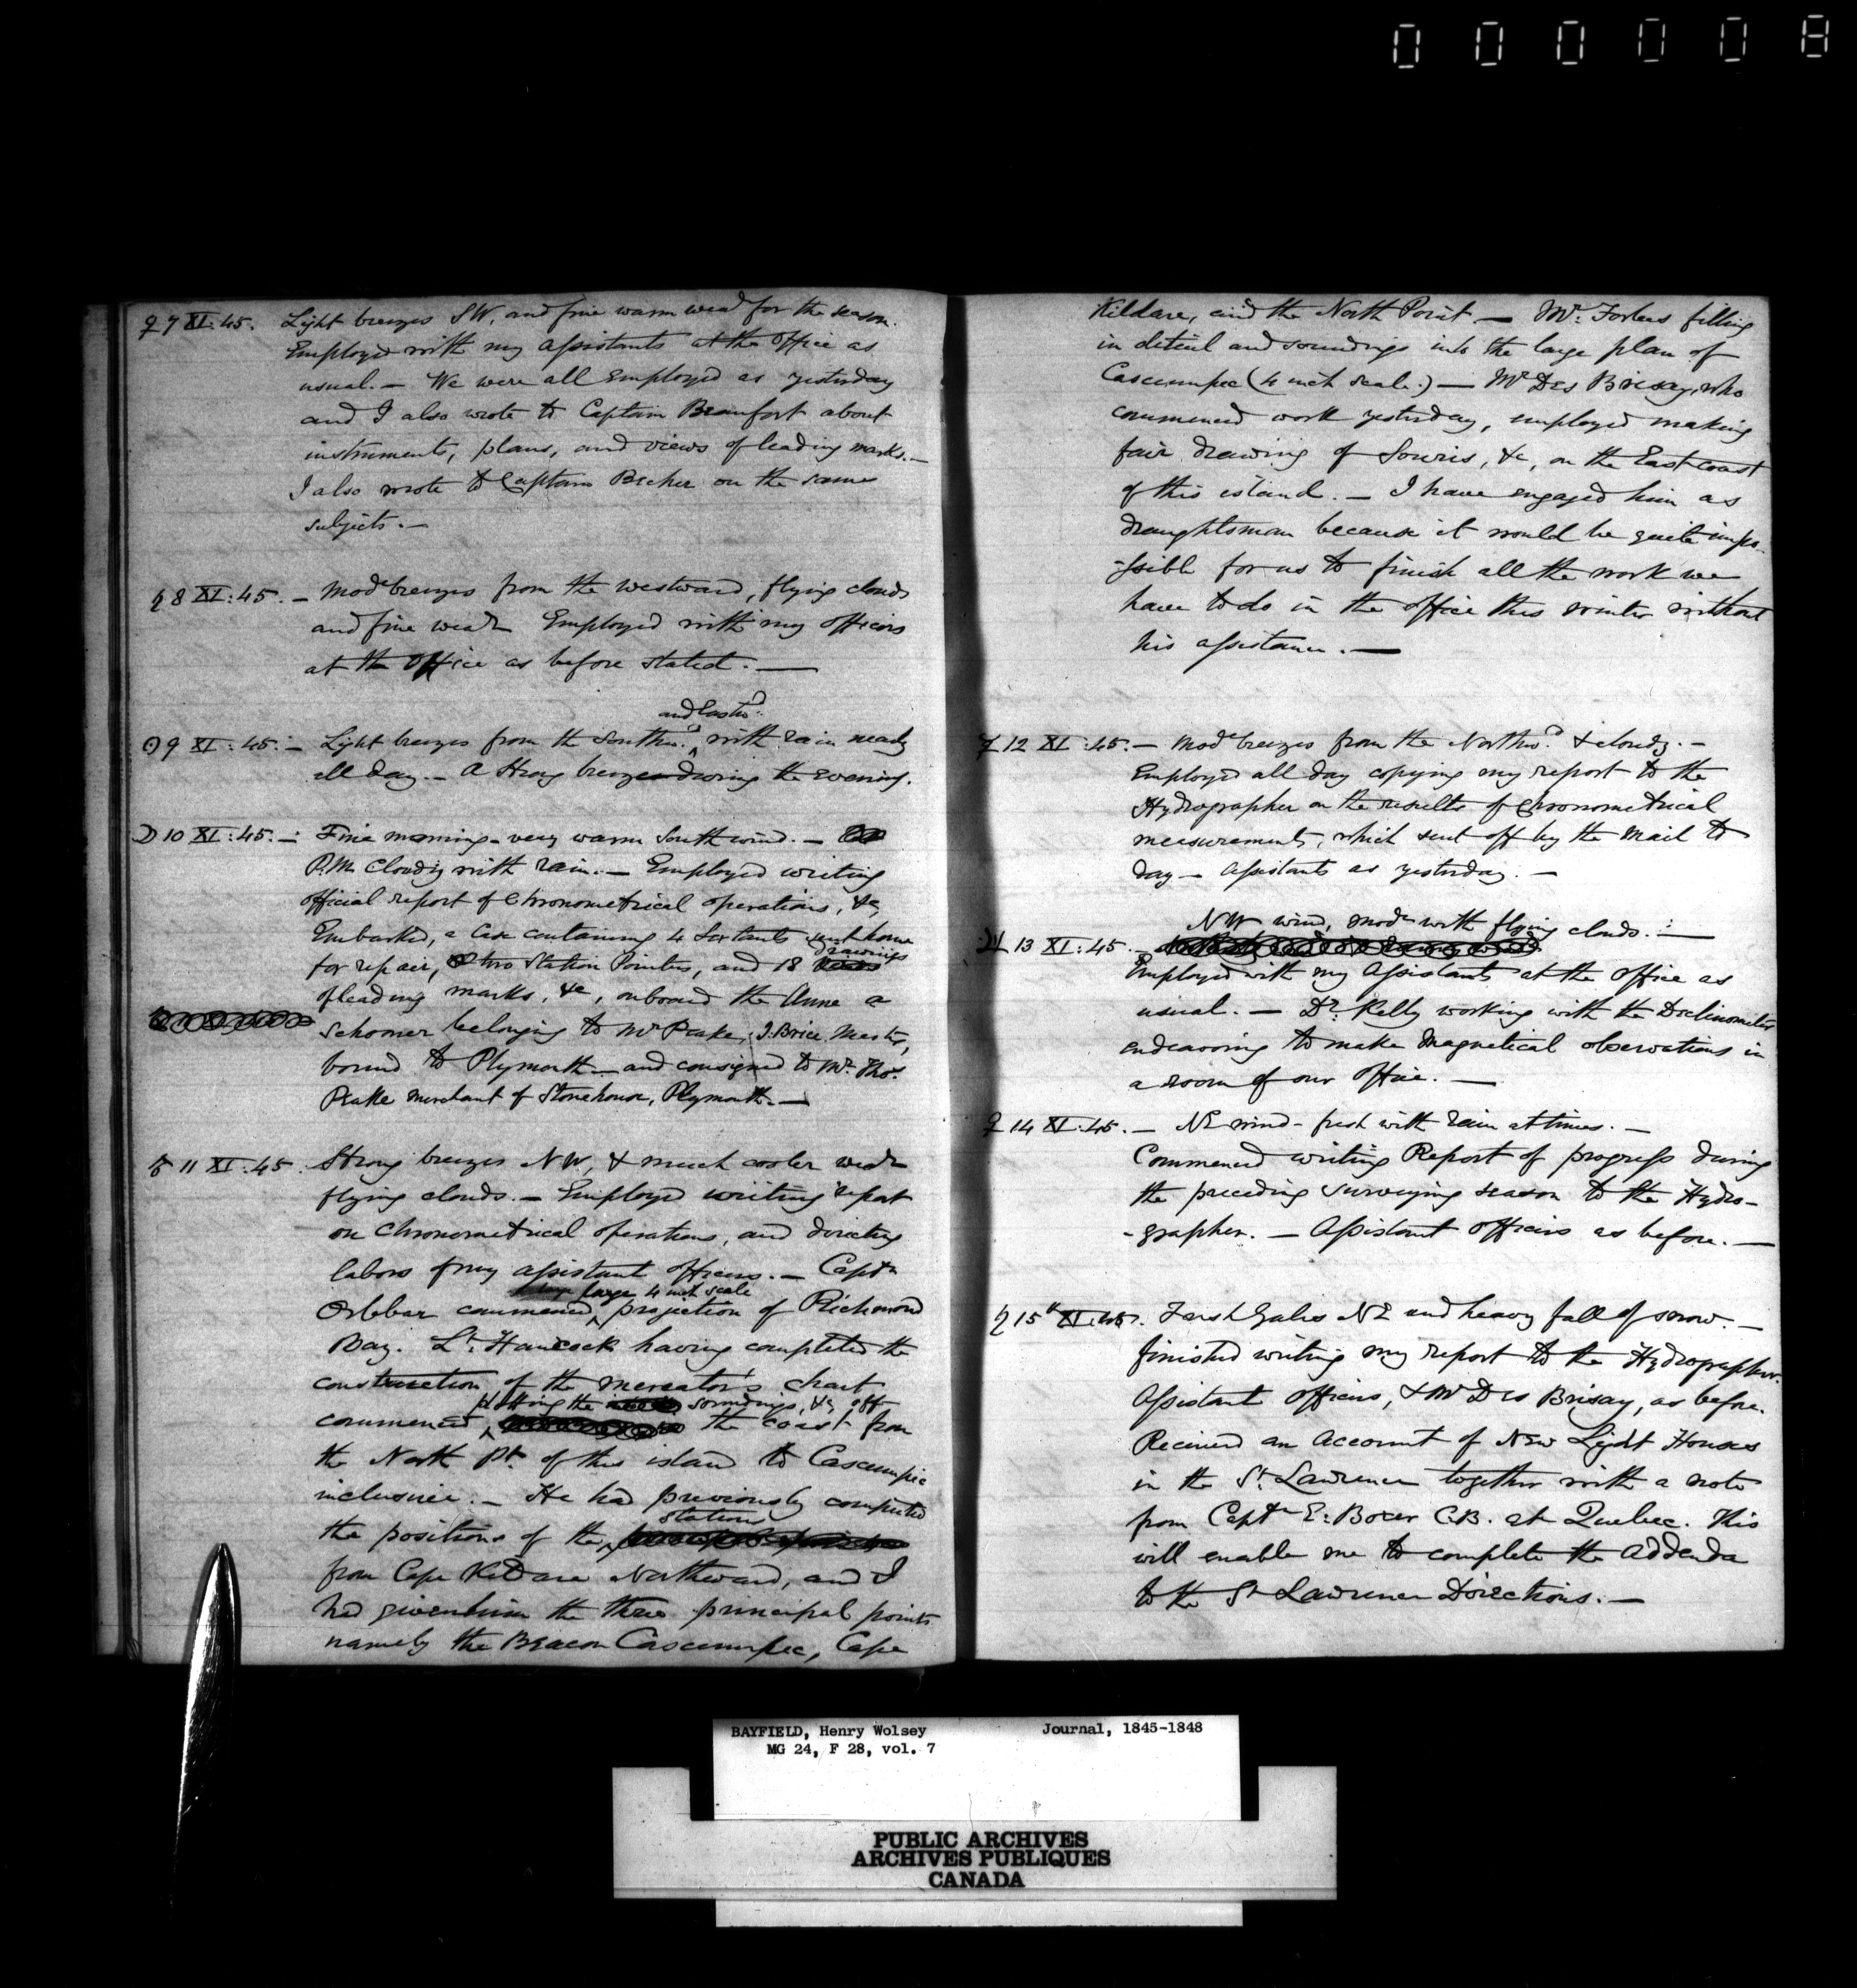 000008
♀ 7 XI:45. Light breezes SW. and fine warm wear for the season.
Employed with my assistants at the Office as
usual. — We were all employed as yesterday
and I also wrote to Captain Beaufort about
instruments, plans, and views of leading marks. —
I also wrote to Captain Becher on the same
subjects. —
♄ 8 XI:45. — Modr breezes from the westward, flying clouds
and fine wear Employed with my officers
at the Office as before stated. —
and Eastwd:
☉ 9 XI:45. — Light breezes from the Southwd. with rain nearly
all day. — A Strong breeze during the Evening.
☽ 10 XI:45. — Fine morning - very warm South wind. —
P.M. Cloudy with rain. — Employed writing
official report of Chronometrical operations, &c,
Embarked, a Case containing 4 Sextants sent home
drawings
for repair, two Station Pointers, and 18
of leading marks, &c, onboard the Anne a
Schooner belonging to Mr Peake, J. Brice Master,
bound to Plymouth — and consigned to Mr. Thos.
Peake merchant of Stonehouse, Plymouth. —
♂ 11 XI:45. Strong breezes NW, & much cooler wear
flying clouds. — Employed writing report
on Chronometrical operations, and directing
labors of my assistant officers. — Captn
large 4 inch scale
Orlebar commenced projection of Richmond
Bay. Lt. Hancock having completed the
construction of the mercator's chart
plotting the soundings, &c, off
commenced the coast from
the North Pt. of this island to Cascumpec
inclusive. — He had previously computed
stations
the positions of the
from Cape Kildare Northward, and I
had given him the three principal points
namely the Beacon Cascumpec, Cape
Kildare, and the North Point — Mr. Forbes filling
in detail and soundings into the large plan of
Cascumpec (4 inch scale.) — Mr Des Brisay, who
commenced work yesterday, employed making
fair drawing of Souris, &c, on the East coast
of this island. — I have engaged him as
draughtsman because it would be quite impo-
-ssible for us to finish all the work we
have to do in the office this winter without
his assistance. —
☿ 12 XI:45. — Modr breezes from the Northwd. & cloudy. —
Employed all day copying my report to the
Hydrographer on the results of Chronometrical
measurements, which sent off by the Mail to
day — Assistants as yesterday. —
NW wind, modr with flying clouds. —
♃ 13 XI:45. —
Employed with my Assistants at the Office as
usual. — Dr. Kelly working with the Declinometer
endeavoring to make Magnetical observations in
a room of our Office. —
♀ 14 XI:45. — NE wind - fresh with rain at times. —
Commenced writing Report of progress during
the preceding surveying season to the Hydro-
-grapher. — Assistant Officers as before. —
♄ 15th XI:45. Fresh Gales NE and heavy fall of snow. —
finished writing my report to the Hydrographer.
Assistant Officers, & Mr Des Brisay, as before.
Received an Account of New Light Houses
in the St. Lawrence together with a note
from Captn E: Boxer C.B. at Quebec. This
will enable me to complete the Addenda
to the St Lawrence Directions. —
BAYFIELD, Henry Wolsey Journal, 1845-1848
MG 24, F 28, vol. 7
PUBLIC ARCHIVES
ARCHIVES PUBLIQUES
CANADA